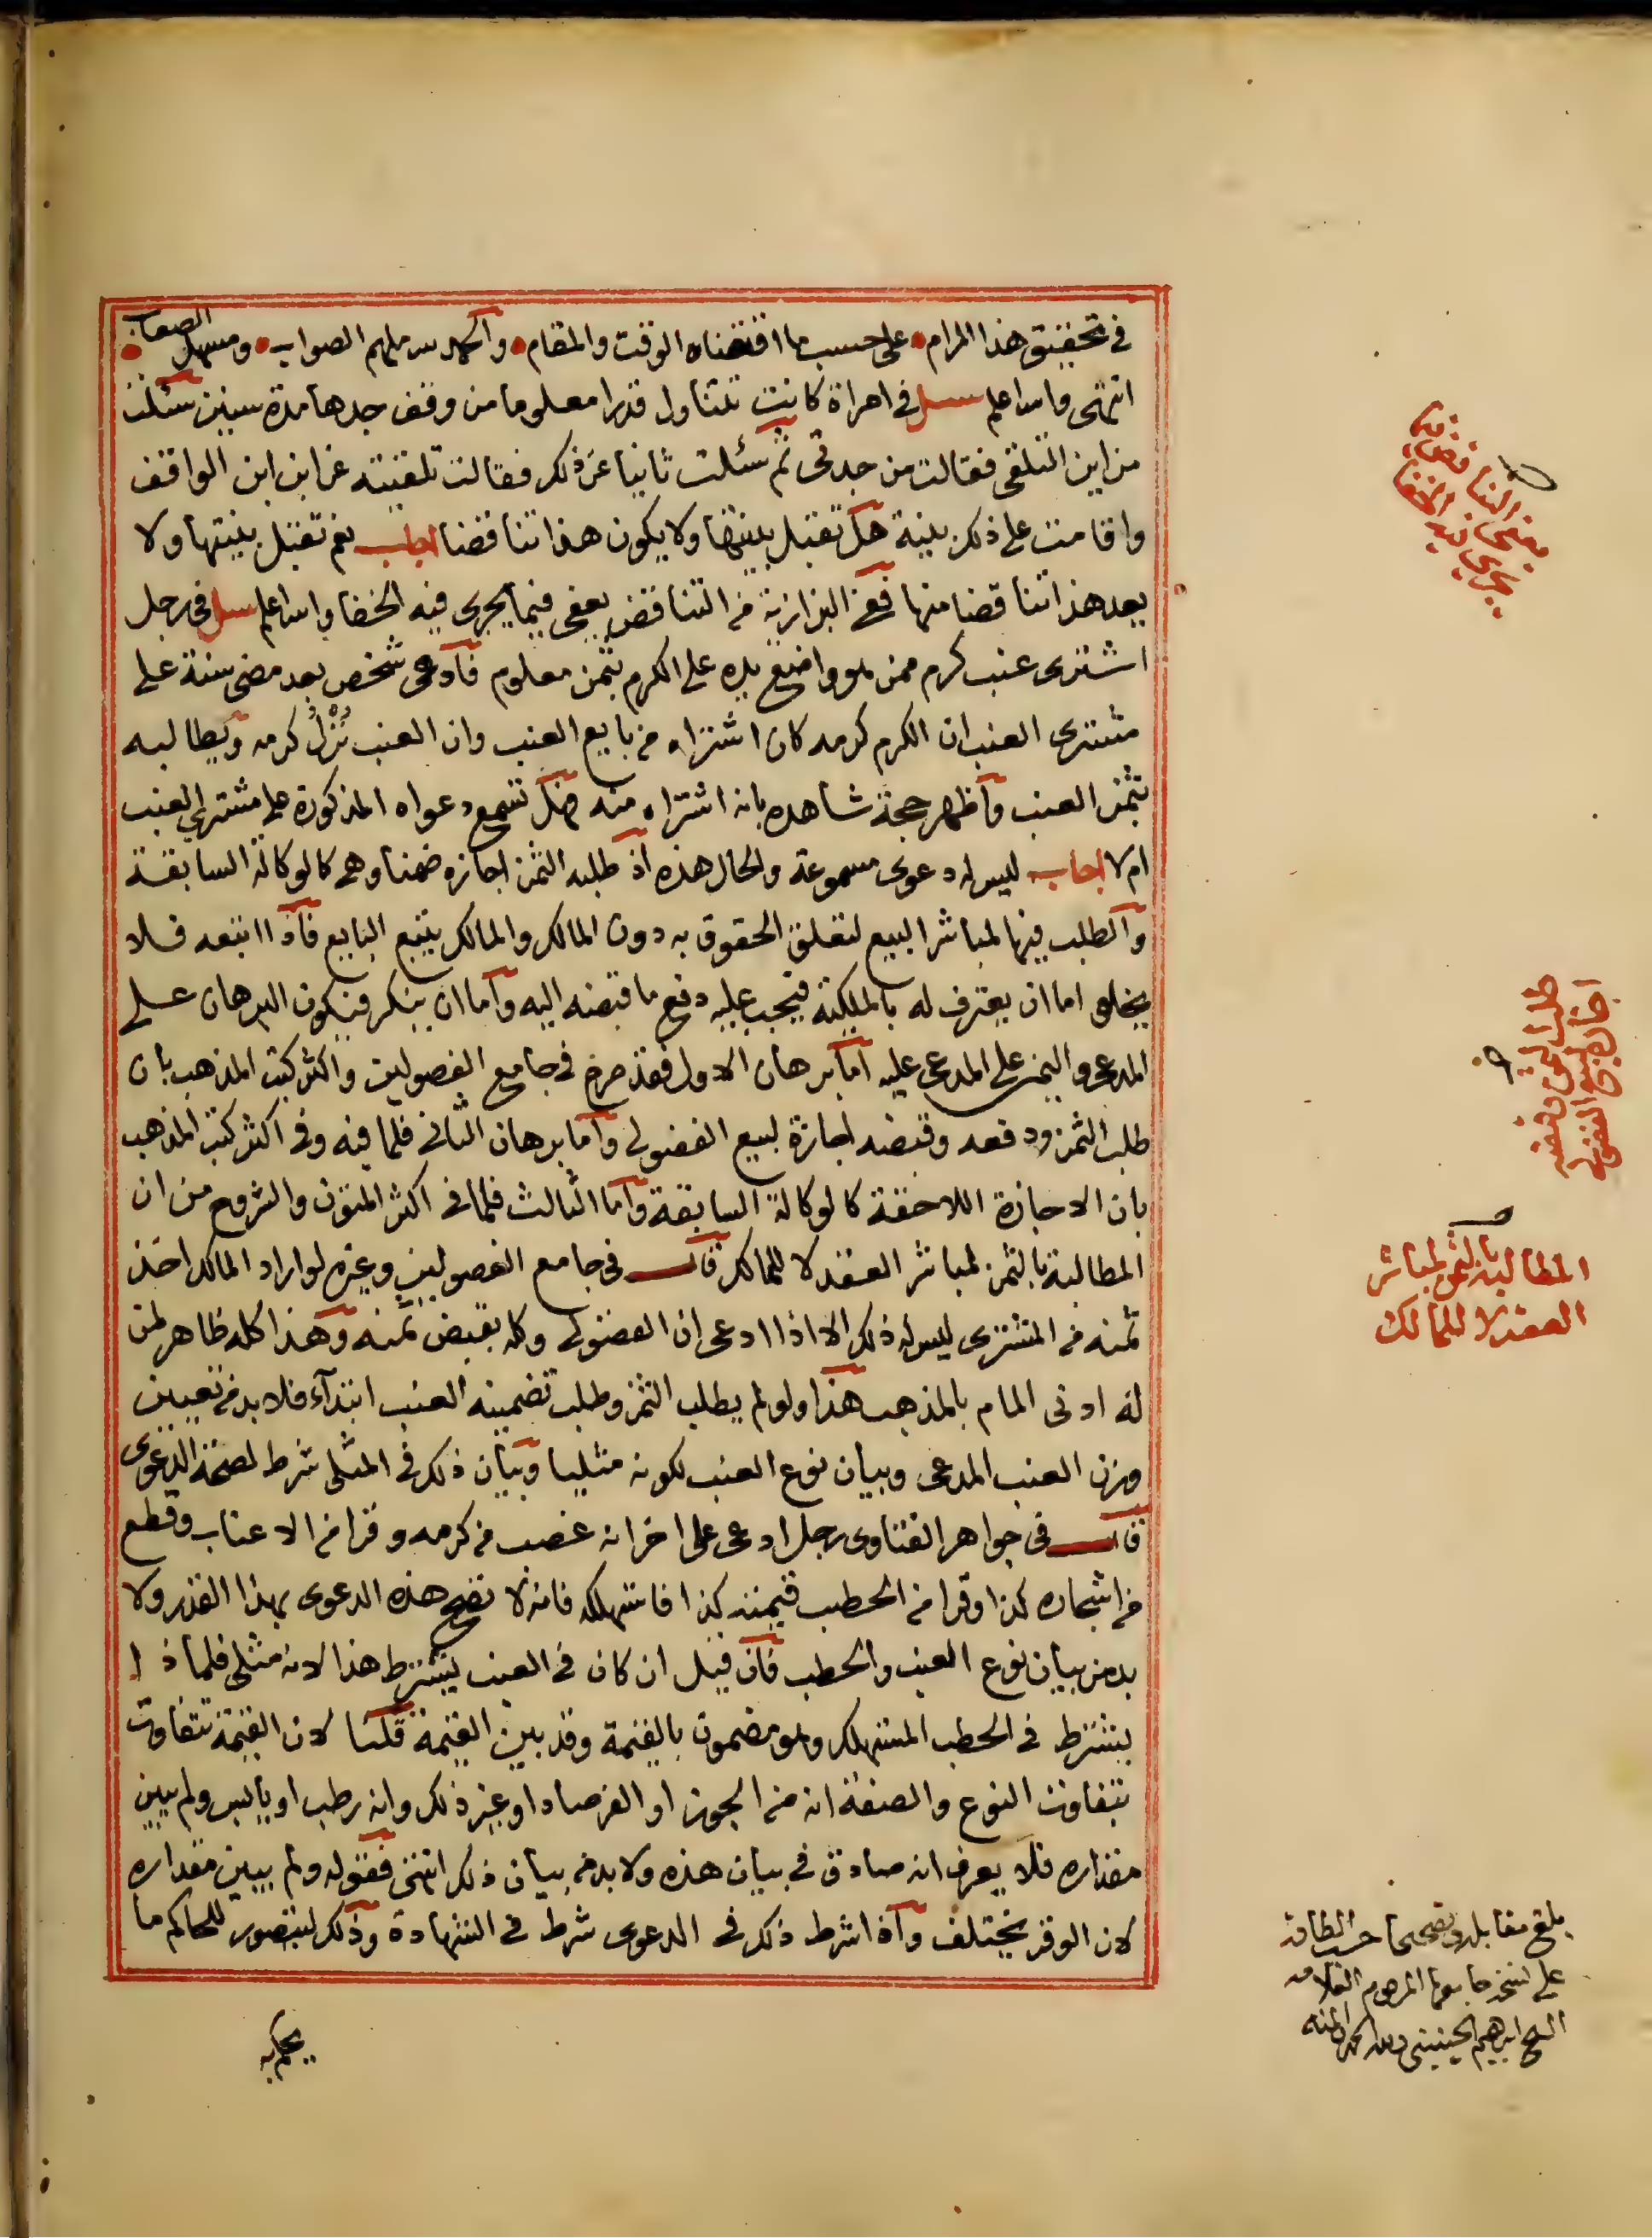 في تحقيق هذا المرام على حسب ما اقتضاه الوقت والمقام والحمد لله ملهم الصواب ومسهل الصعاب
انتهى والله اعلم سئل في امراة كانت تتناول قدرا معلوما من وقف جدها مدة سنين سئلت
من اين التلقي فقالت من جدتي ثم سئلت ثانيا عن ذلك فقالت تلقيته عن ابن ابن الواقف
واقامت على ذلك بينة هل تقبل بينتها ولا يكون هذا تناقضا اجاب نعم تقبل بينتها ولا
يعد هذا تناقضا منها ففي البزازية من التناقض يعفى فيما يجري فيه الخفا والله اعلم سئل في رجل
اشترى عنب كرم ممن هو واضع يده على الكرم بثمن معلوم فادعى شخص بعد مضي سنة على
مشتري العنب ان الكرم كرمه كان اشتراه من بايع العنب وان العنب نزل كرمه ويطالبه
بثمن العنب واظهر حجة شاهده بانه اشتراه منه فهل تسمع دعواه المذكورة على مشتري العنب
ام لا اجاب ليس له دعوى مسموعة والحال هذه اذ طلبه الثمن اجازه ضمنا وهي كالوكالة السابقة
والطلب فيها لمباشر البيع لتعلق الحقوق به دون المالك والمالك يتبع البايع فاذا اتبعه فلا
يخلو اما ان يعترف له بالملكية فيجب عليه دفع ما قبضه اليه واما ان ينكر فيكون البرهان على
المدعي واليمين على المدعى عليه اما برهان الاول فقد صرح في جامع الفصولين واكثر كتب المذهب بان
طلب الثمن ودفعه وقبضه اجازة لبيع الفضولي واما برهان الثاني فلما فيه وفي اكثر كتب المذهب
بان الاجازة اللاحقة كالوكالة السابقة واما الثالث فلما في اكثر المتون والشروح من ان
المطالبة بالثمن لمباشر العقد لا للمالك قال في جامع الفصولين وغيره لو اراد المالك اخذ
ثمنه من المشتري ليس له ذلك الا اذا ادعى ان الفضولي وكله بقبض ثمنه وهذا كله ظاهر لمن
له ادنى المام بالمذهب هذا ولو لم يطلب الثمن وطلب تضمينه العنب ابتداء فلا بد من تعيين
وزن العنب المدعى وبيان نوع العنب لكونه مثليا وبيان ذلك في المثلي شرط لصحة الدعوى
قال في جواهر الفتاوى رجل ادعى على اخر انه غصب من كرمه وقرا من الاعناب وقطع
من اشجاره كذا وقرا من الحطب قيمته كذا فاستهلكه فانه لا تصح هذه الدعوى بهذا القدر ولا
بد من بيان نوع العنب والحطب فان قيل ان كان في العنب يشترط هذا لانه مثلي فلماذا
يشترط في الحطب المستهلك وهو مضمون بالقيمة وقد بين القيمة قلنا لان القيمة تتفاوت
بتفاوت النوع والصفة انه من الجوز او الفرصاد او غير ذلك وانه رطب او يابس ولم يبين
مقداره فلا يعرف انه صادق في بيان هذه ولا بد من بيان ذلك انتهى فقوله ولم يبين مقداره
لان الوقر يختلف واذا شرط ذلك في الدعوى شرط في الشهادة وذلك ليتصور للحاكم ما
يحكم به
مط
التناقض
يعفى فيما
يجري فيه الخفا
طلب الثمن وقبضه
اجازة لبيع الفضولي
المطالبة بالثمن لمباشر
العقد لا للمالك
بلغ مقابلة وتصحيحا حسب الطاقة
على نسخة جامعها المرحوم العلامة
الشيخ ابراهيم الجينيني ولله الحمد والمنه